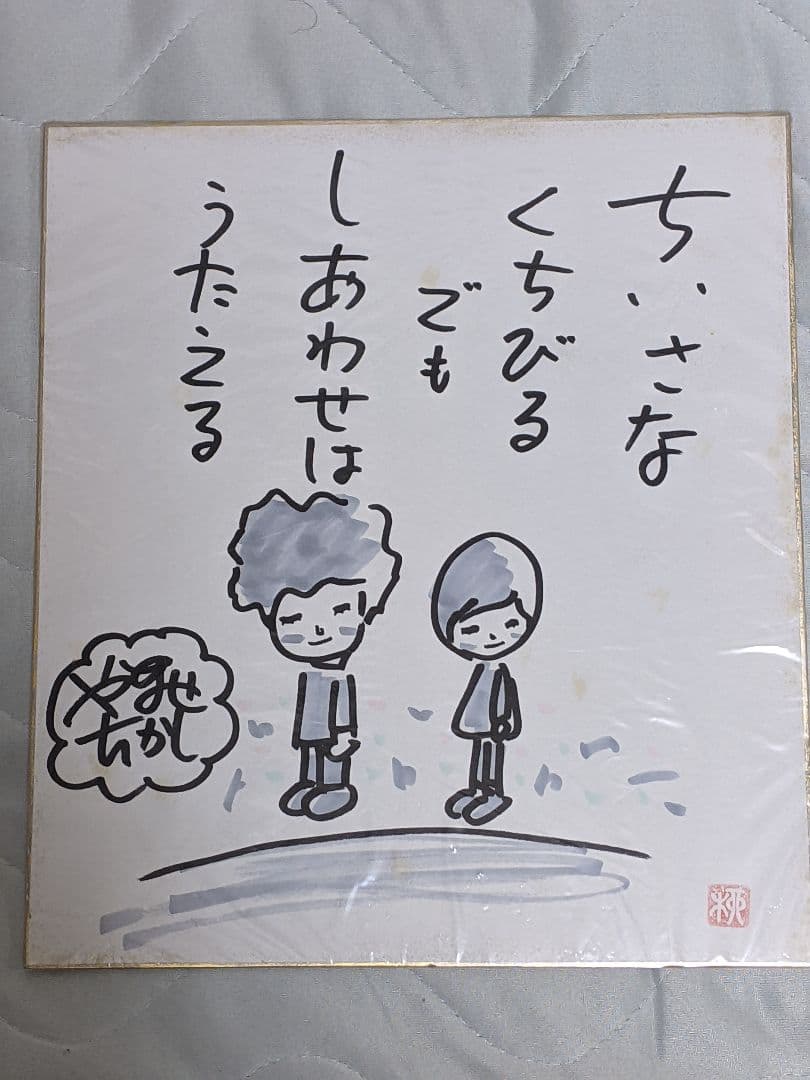 ちいさな
くちびる
でも
しあわせは
うたえる
やなせ
たかし